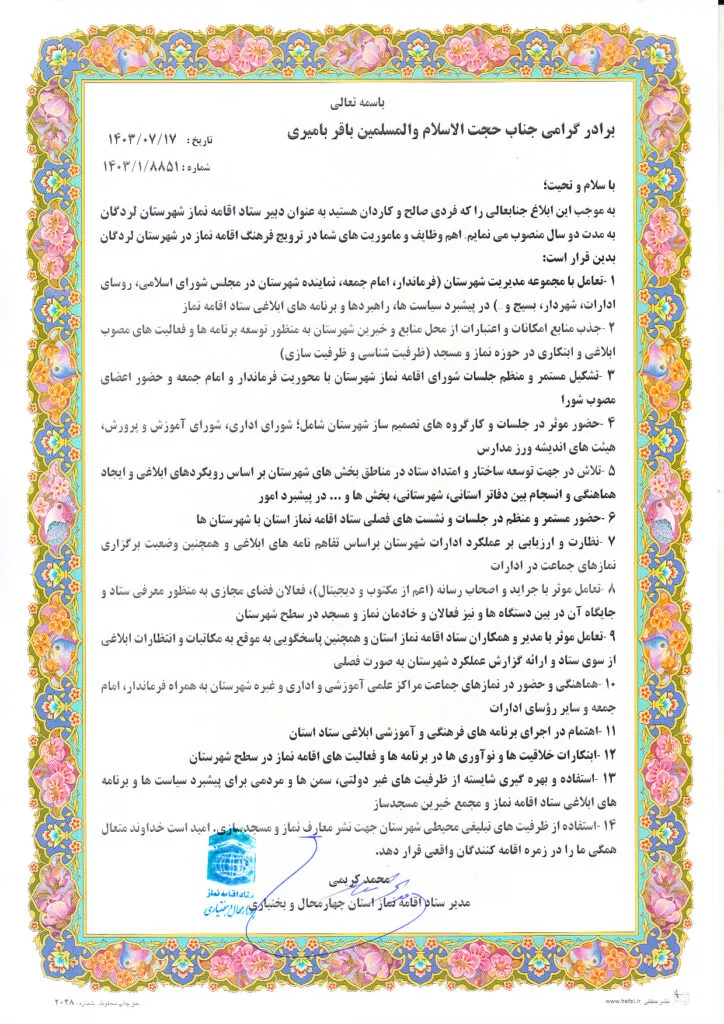 باسمه تعالی
برادر گرامی جناب حجت الاسلام والمسلمین باقر بامیری
تاریخ: ۱۴۰۳/۰۷/۱۷
شماره: ۱۴۰۳/۱/۸۸۵۱
با سلام و تحیت؛
به موجب این ابلاغ جنابعالی را که فردی صالح و کاردان هستید به عنوان دبیر ستاد اقامه نماز شهرستان لردگان
به مدت دو سال منصوب می نمایم. اهم وظایف و ماموریت های شما در ترویج فرهنگ اقامه نماز در شهرستان لردگان
بدین قرار است:
۱ -تعامل با مجموعه مدیریت شهرستان (فرماندار، امام جمعه، نماینده شهرستان در مجلس شورای اسلامی، روسای
ادارات، شهردار، بسیج و ...) در پیشبرد سیاست ها، راهبردها و برنامه های ابلاغی ستاد اقامه نماز
۲ -جذب منابع امکانات و اعتبارات از محل منابع و خیرین شهرستان به منظور توسعه برنامه ها و فعالیت های مصوب
ابلاغی و ابتکاری در حوزه نماز و مسجد (ظرفیت شناسی و ظرفیت سازی)
۳ -تشکیل مستمر و منظم جلسات شورای اقامه نماز شهرستان با محوریت فرماندار و امام جمعه و حضور اعضای
مصوب شورا
۴ -حضور موثر در جلسات و کارگروه های تصمیم ساز شهرستان شامل؛ شورای اداری، شورای آموزش و پرورش،
هیئت های اندیشه ورز مدارس
۵ -تلاش در جهت توسعه ساختار و امتداد ستاد در مناطق بخش های شهرستان بر اساس رویکردهای ابلاغی و ایجاد
هماهنگی و انسجام بین دفاتر استانی، شهرستانی، بخش ها و ... در پیشبرد امور
۶ -حضور مستمر و منظم در جلسات و نشست های فصلی ستاد اقامه نماز استان با شهرستان ها
۷ -نظارت و ارزیابی بر عملکرد ادارات شهرستان براساس تفاهم نامه های ابلاغی و همچنین وضعیت برگزاری
نمازهای جماعت در ادارات
۸ -تعامل موثر با جراید و اصحاب رسانه (اعم از مکتوب و دیجیتال)، فعالان فضای مجازی به منظور معرفی ستاد و
جایگاه آن در بین دستگاه ها و نیز فعالان و خادمان نماز و مسجد در سطح شهرستان
۹ -تعامل موثر با مدیر و همکاران ستاد اقامه نماز استان و همچنین پاسخگویی به موقع به مکاتبات و انتظارات ابلاغی
از سوی ستاد و ارائه گزارش عملکرد شهرستان به صورت فصلی
۱۰ -هماهنگی و حضور در نمازهای جماعت مراکز علمی آموزشی و اداری و غیره شهرستان به همراه فرماندار، امام
جمعه و سایر رؤسای ادارات
۱۱ -اهتمام در اجرای برنامه های فرهنگی و آموزشی ابلاغی ستاد استان
۱۲ -ابتکارات خلاقیت ها و نوآوری ها در برنامه ها و فعالیت های اقامه نماز در سطح شهرستان
۱۳ -استفاده و بهره گیری شایسته از ظرفیت های غیر دولتی، سمن ها و مردمی برای پیشبرد سیاست ها و برنامه
های ابلاغی ستاد اقامه نماز و مجمع خیرین مسجدساز
۱۴ -استفاده از ظرفیت های تبلیغی محیطی شهرستان جهت نشر معارف نماز و مسجدسازی. امید است خداوند متعال
همگی ما را در زمره اقامه کنندگان واقعی قرار دهد.
محمد کریمی
مدیر ستاد اقامه نماز استان چهارمحال و بختیاری
ستاد اقامه نماز
چهارمحال و بختیاری
حق چاپ محفوظ. شماره: ۲۰۴۸
نشر حفظی www.hefzi.ir